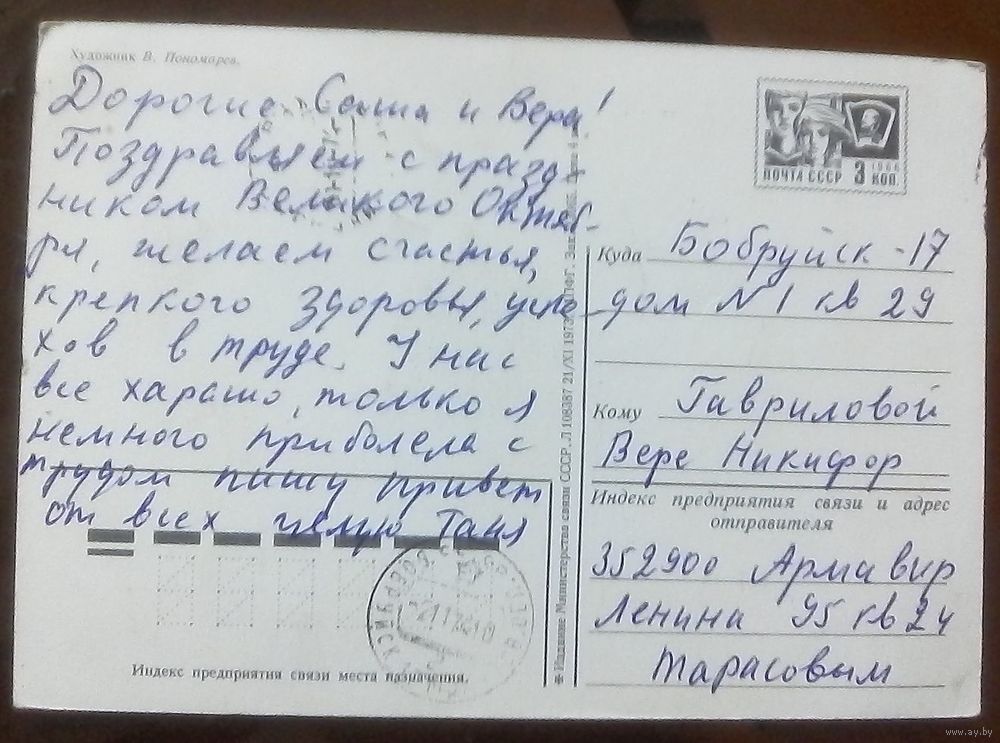 Художник В. Пономарев.
Дорогие Саша и Вера!
Поздравляем с празд-
ником Великого Октяб-
ря, желаем счастья,
крепкого здоровья, успе-
хов в труде. У нас
все харашо, только я
немного приболела с
трудом пишу привет
от всех целую Таня
Индекс предприятия связи места назначения.
Издание Министерства связи СССР. Л 108387 21/XI 1973 ППФГ. Зак.
ПОЧТА СССР 3 КОП.
1966
Куда Бобруйск-17
дом №1 кв 29
Кому Гавриловой
Вере Никифор
Индекс предприятия связи и адрес
отправителя
352900 Армавир
Ленина 95 кв 24
Тарасовым
БОБРУЙСК
www.ay.by